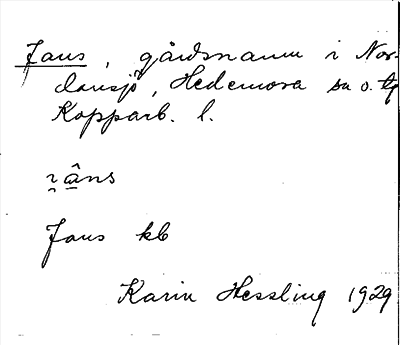 Jans, gårdsnamn i Nor-
dansjö, Hedemora sn o. tg
Kopparb. l.
i̯âns
Jans kb
Karin Hessling 1929